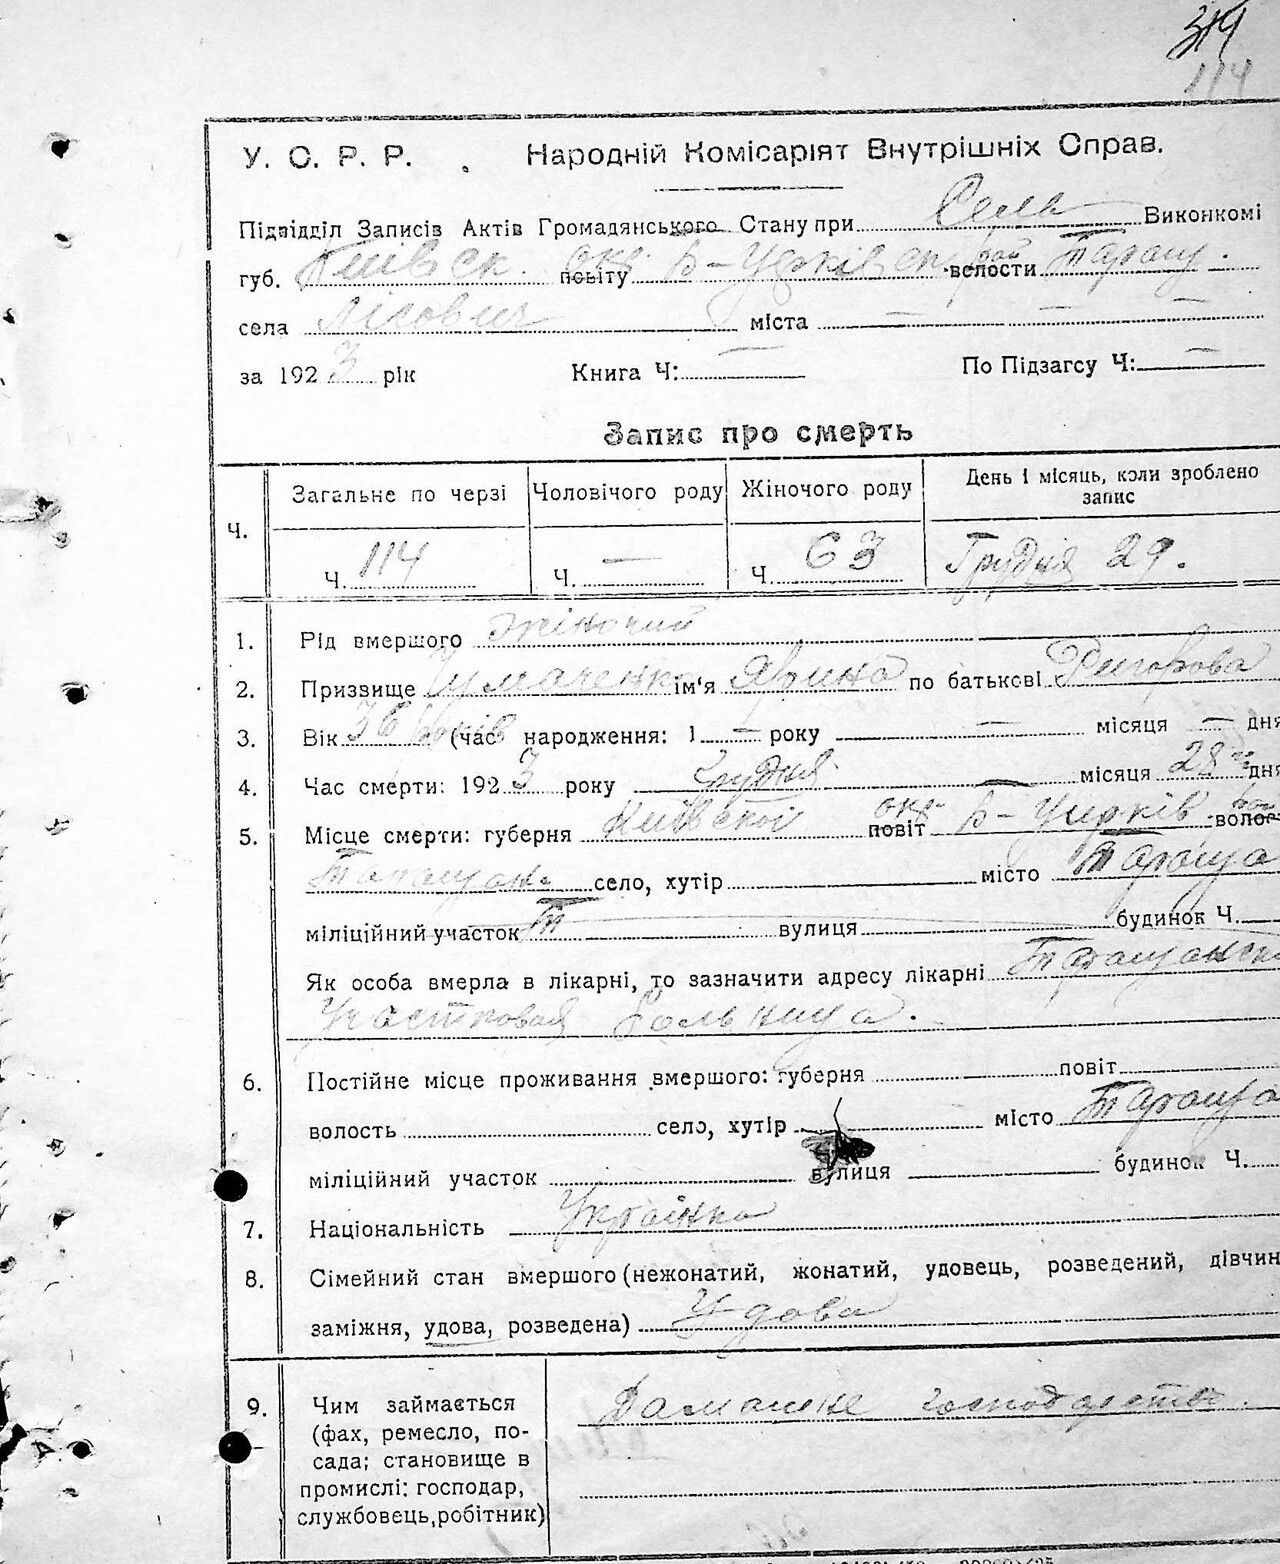 314
114
У. С. Р. Р. Народній Комісаріят Внутрішніх Справ.
Підвідділ Записів Актів Громадянського Стану при Сель Виконкомі
губ. Київск. повіту окр. Б-Церківск рай волости Таращ.
села Лісович міста — —
за 1923 рік Книга Ч: — По Підзагсу Ч: —
Запис про смерть
Ч. Загальне по черзі Чоловічого роду Жіночого роду День і місяць, коли зроблено запис
Ч. 114 Ч. — Ч. 63 Грудня 29.
1. Рід вмершого жіночий
2. Призвище Чумаченк ім'я Ярина по батькові Григорова
3. Вік 36 років (час народження: 1 — року — місяця — дня
4. Час смерти: 1923 року Грудня — місяця 28го дня
5. Місце смерти: губерня Київскої повіт окр. Б-Церків рай волост
Таращан. село, хутір місто Тараща
міліційний участок Т вулиця будинок Ч.
Як особа вмерла в лікарні, то зазначити адресу лікарні Таращанск
Участковая больница.
6. Постійне місце проживання вмершого: губерня повіт
волость село, хутір місто Тараща
міліційний участок вулиця будинок Ч.
7. Національність Українка
8. Сімейний стан вмершого (нежонатий, жонатий, удовець, розведений, дівчин
заміжня, удова, розведена) Удова
9. Чим займається Домашне господарство.
(фах, ремесло, по-
сада; становище в
промислі: господар,
службовець, робітник)